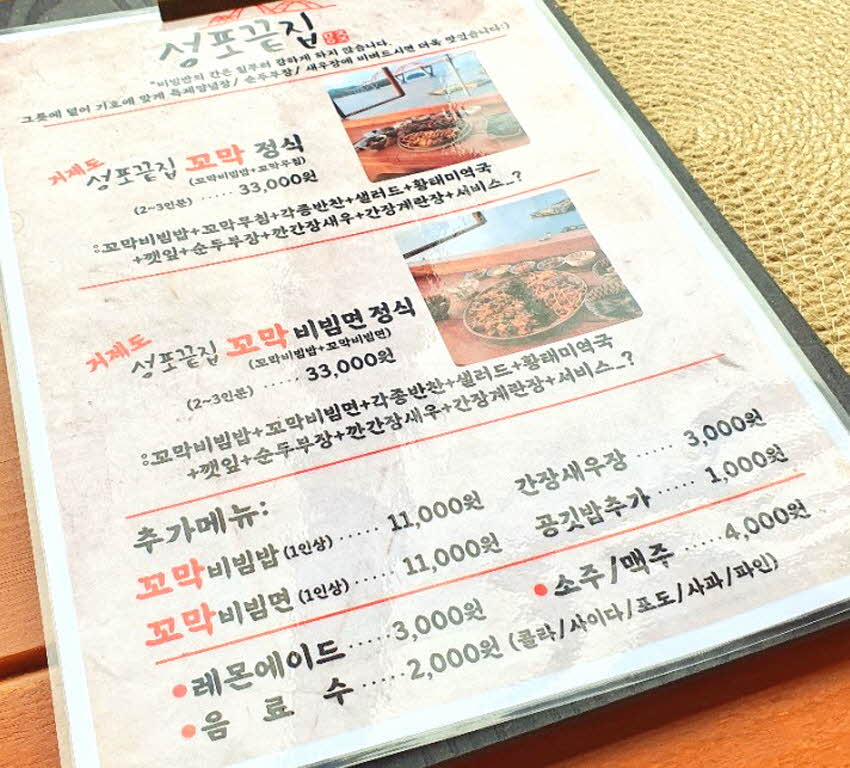 성포끝집
*비빔밥의 간은 일부러 강하게 하지 않습니다.
그릇에 덜어 기호에 맞게 특제양념장/ 순두부장/ 새우장에 비벼드시면 더욱 맛있습니다:)
거제도 성포끝집 꼬막 정식
(꼬막비빔밥+꼬막무침)
(2~3인분) ····· 33,000원
:꼬막비빔밥+꼬막무침+각종반찬+샐러드+황태미역국
+깻잎+순두부장+깐간장새우+간장계란장+서비스_?
거제도 성포끝집 꼬막 비빔면 정식
(꼬막비빔밥+꼬막비빔면)
(2~3인분) ····· 33,000원
:꼬막비빔밥+꼬막비빔면+각종반찬+샐러드+황태미역국
+깻잎+순두부장+깐간장새우+간장계란장+서비스_?
추가메뉴:
꼬막비빔밥 (1인상) ····· 11,000원
꼬막비빔면 (1인상) ····· 11,000원
간장새우장 ····· 3,000원
공깃밥추가 ····· 1,000원
•레몬에이드 ····· 3,000원
•소주/맥주 ····· 4,000원
•음 료 수 ····· 2,000원 (콜라/사이다/포도/사과/파인)